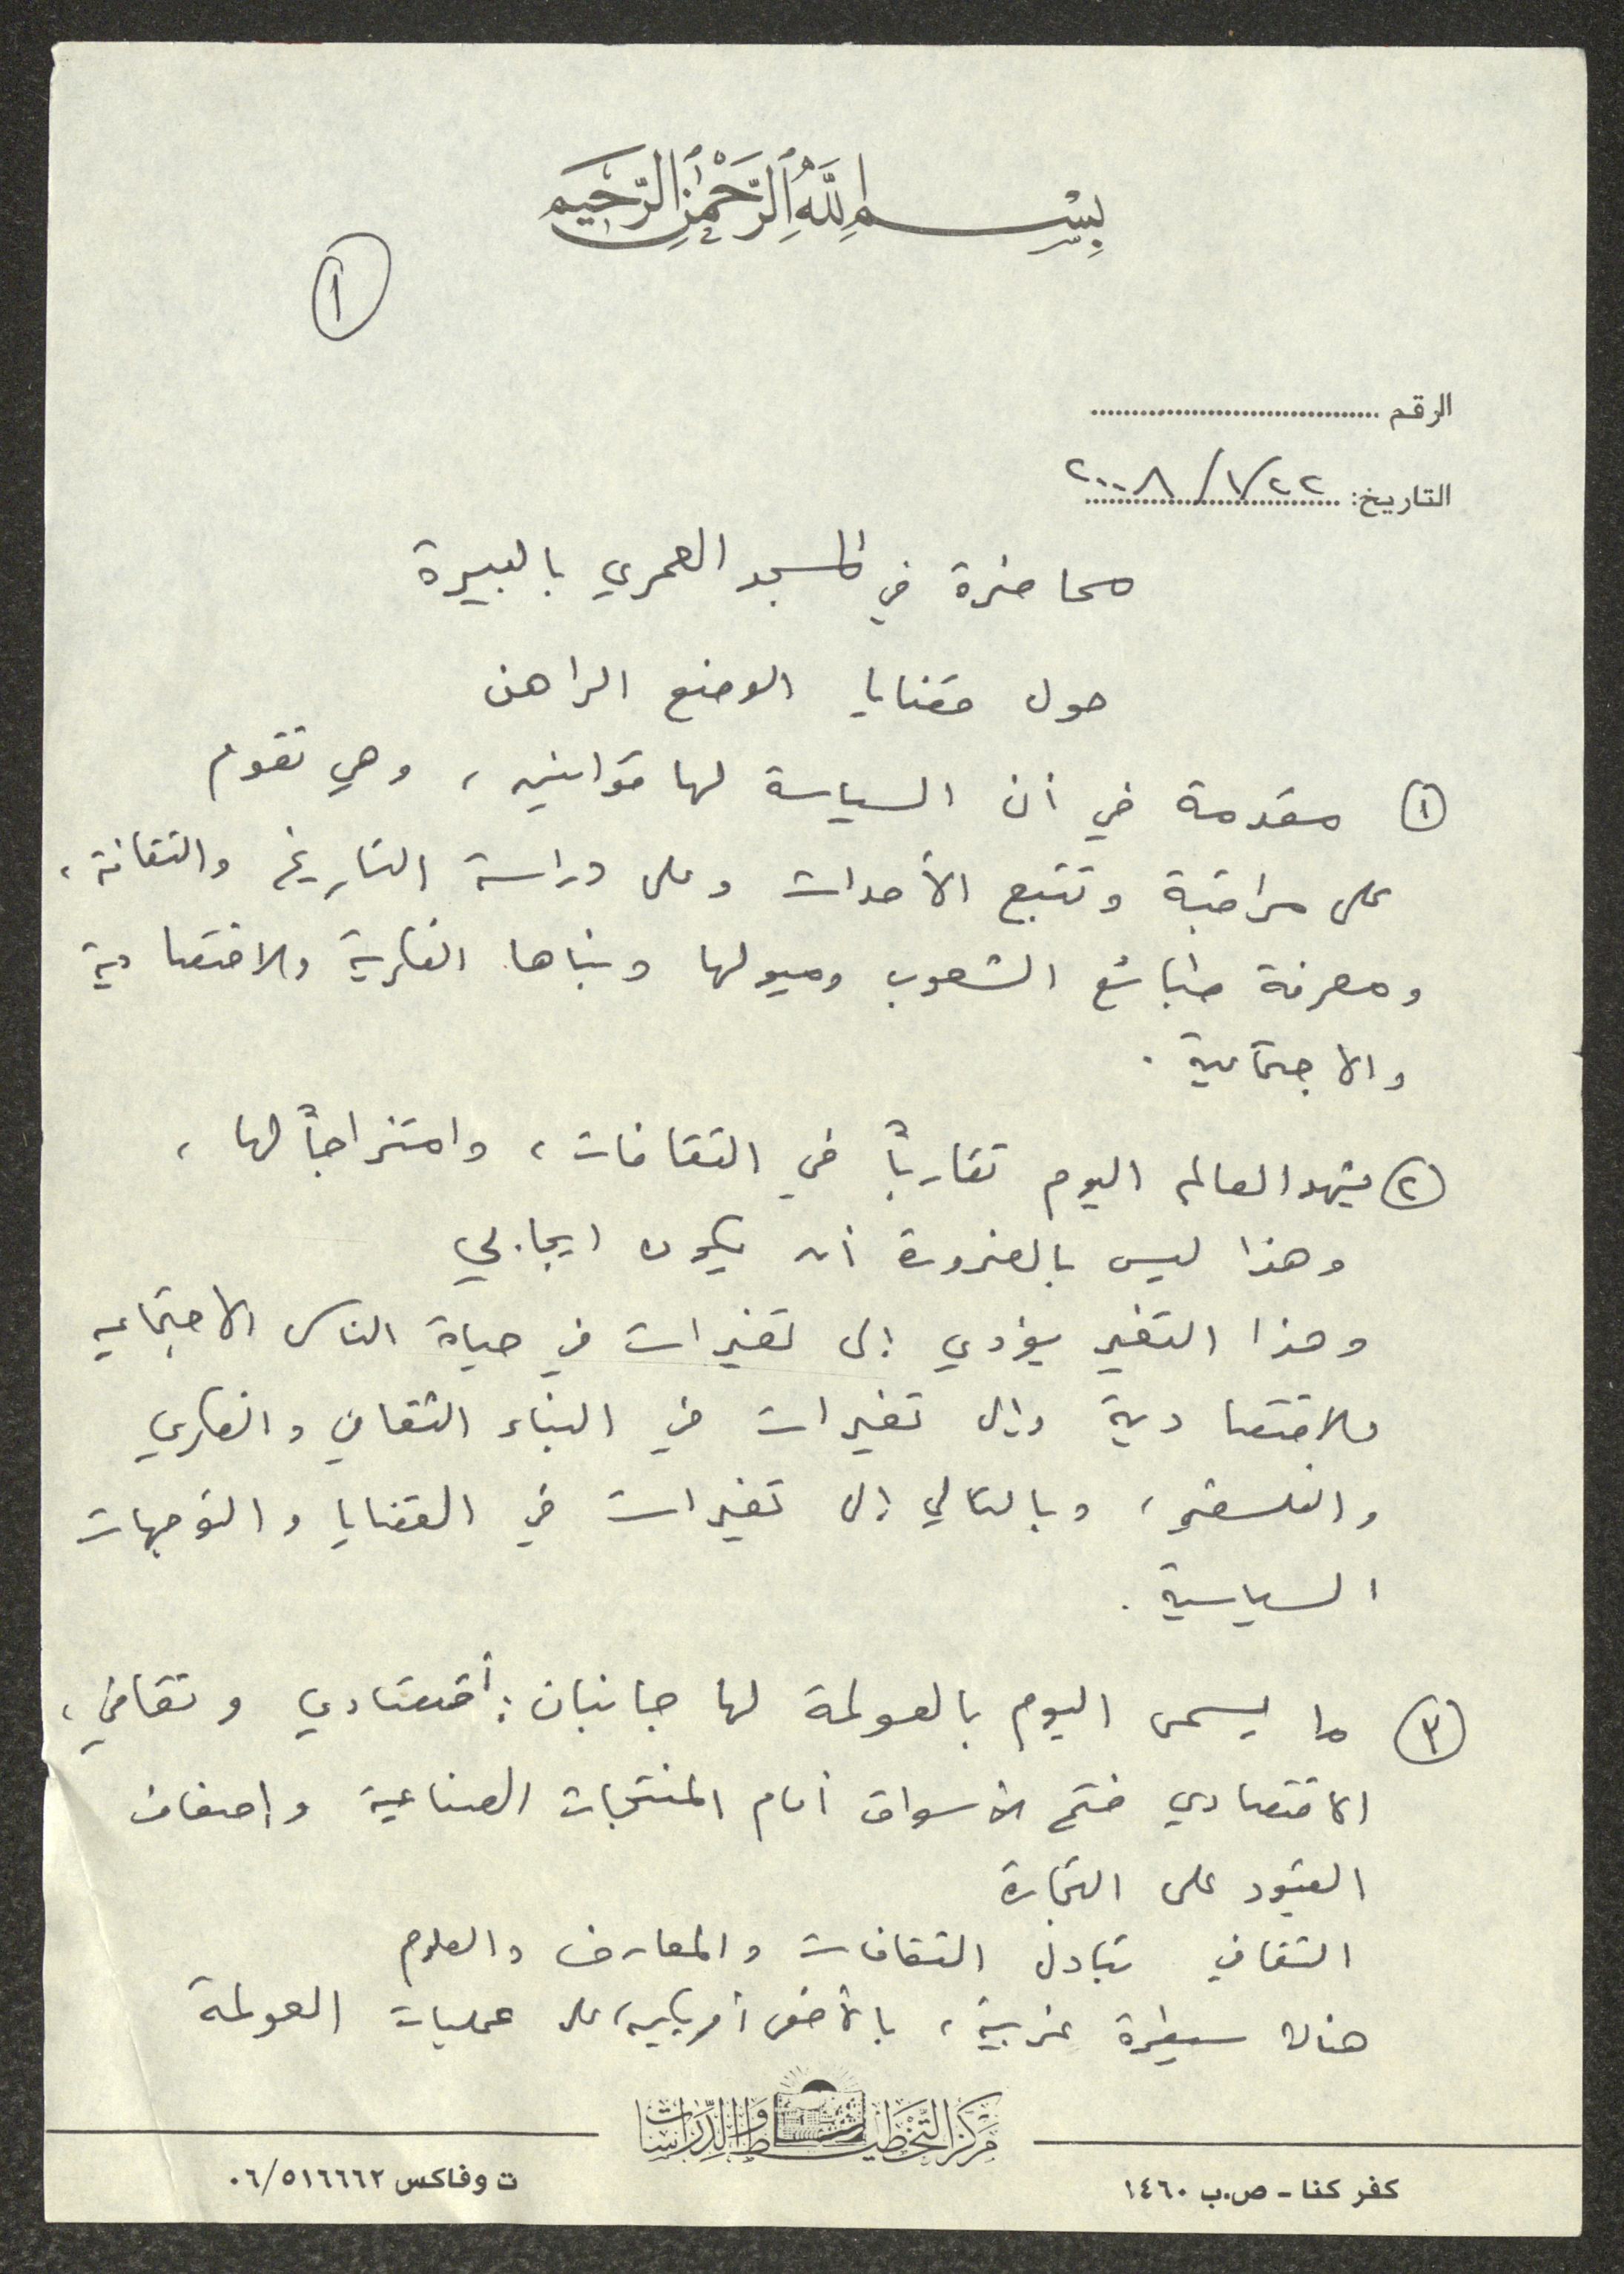 بِسْمِ اللَّهِ الرَّحْمَٰنِ الرَّحِيمِ
١
الرقم
التاريخ: ٢٢/١/٢٠٠٨
محاضرة في المسجد العمري بالبيرة
حول قضايا الوضع الراهن
١ مقدمة في أن السياسة لها قوانين، وهي تقوم
على مراقبة وتتبع الأحداث وعلى دراسة التاريخ والثقافة،
ومعرفة طبائع الشعوب وميولها وبناها الفكرية والاقتصادية
والاجتماعية.
٢ يشهد العالم اليوم تقارباً في الثقافات، وامتزاجاً لها،
وهذا ليس بالضرورة أن يكون ايجابي
وهذا التغير يؤدي إلى تغيرات في حياة الناس الاجتماعيه
والاقتصادية وإلى تغيرات في البناء الثقافي والفكري
والفلسفي، وبالتالي إلى تغيرات في القضايا والتوجهات
السياسية.
٣ ما يسمى اليوم بالعولمة لها جانبان: أقتصادي وثقافي،
الاقتصادي فتح الأسواق أمام المنتجات الصناعية وإضعاف
القيود على التجارة
الثقافي تبادل الثقافات والمعارف والعلوم
هناك سيطرة غربية، بالأخص أمريكية، على عمليات العولمة
مركز التخطيط والدراسات
كفر كنا - ص.ب ١٤٦٠
ت وفاكس ٠٦/٥١٦٦٦٢